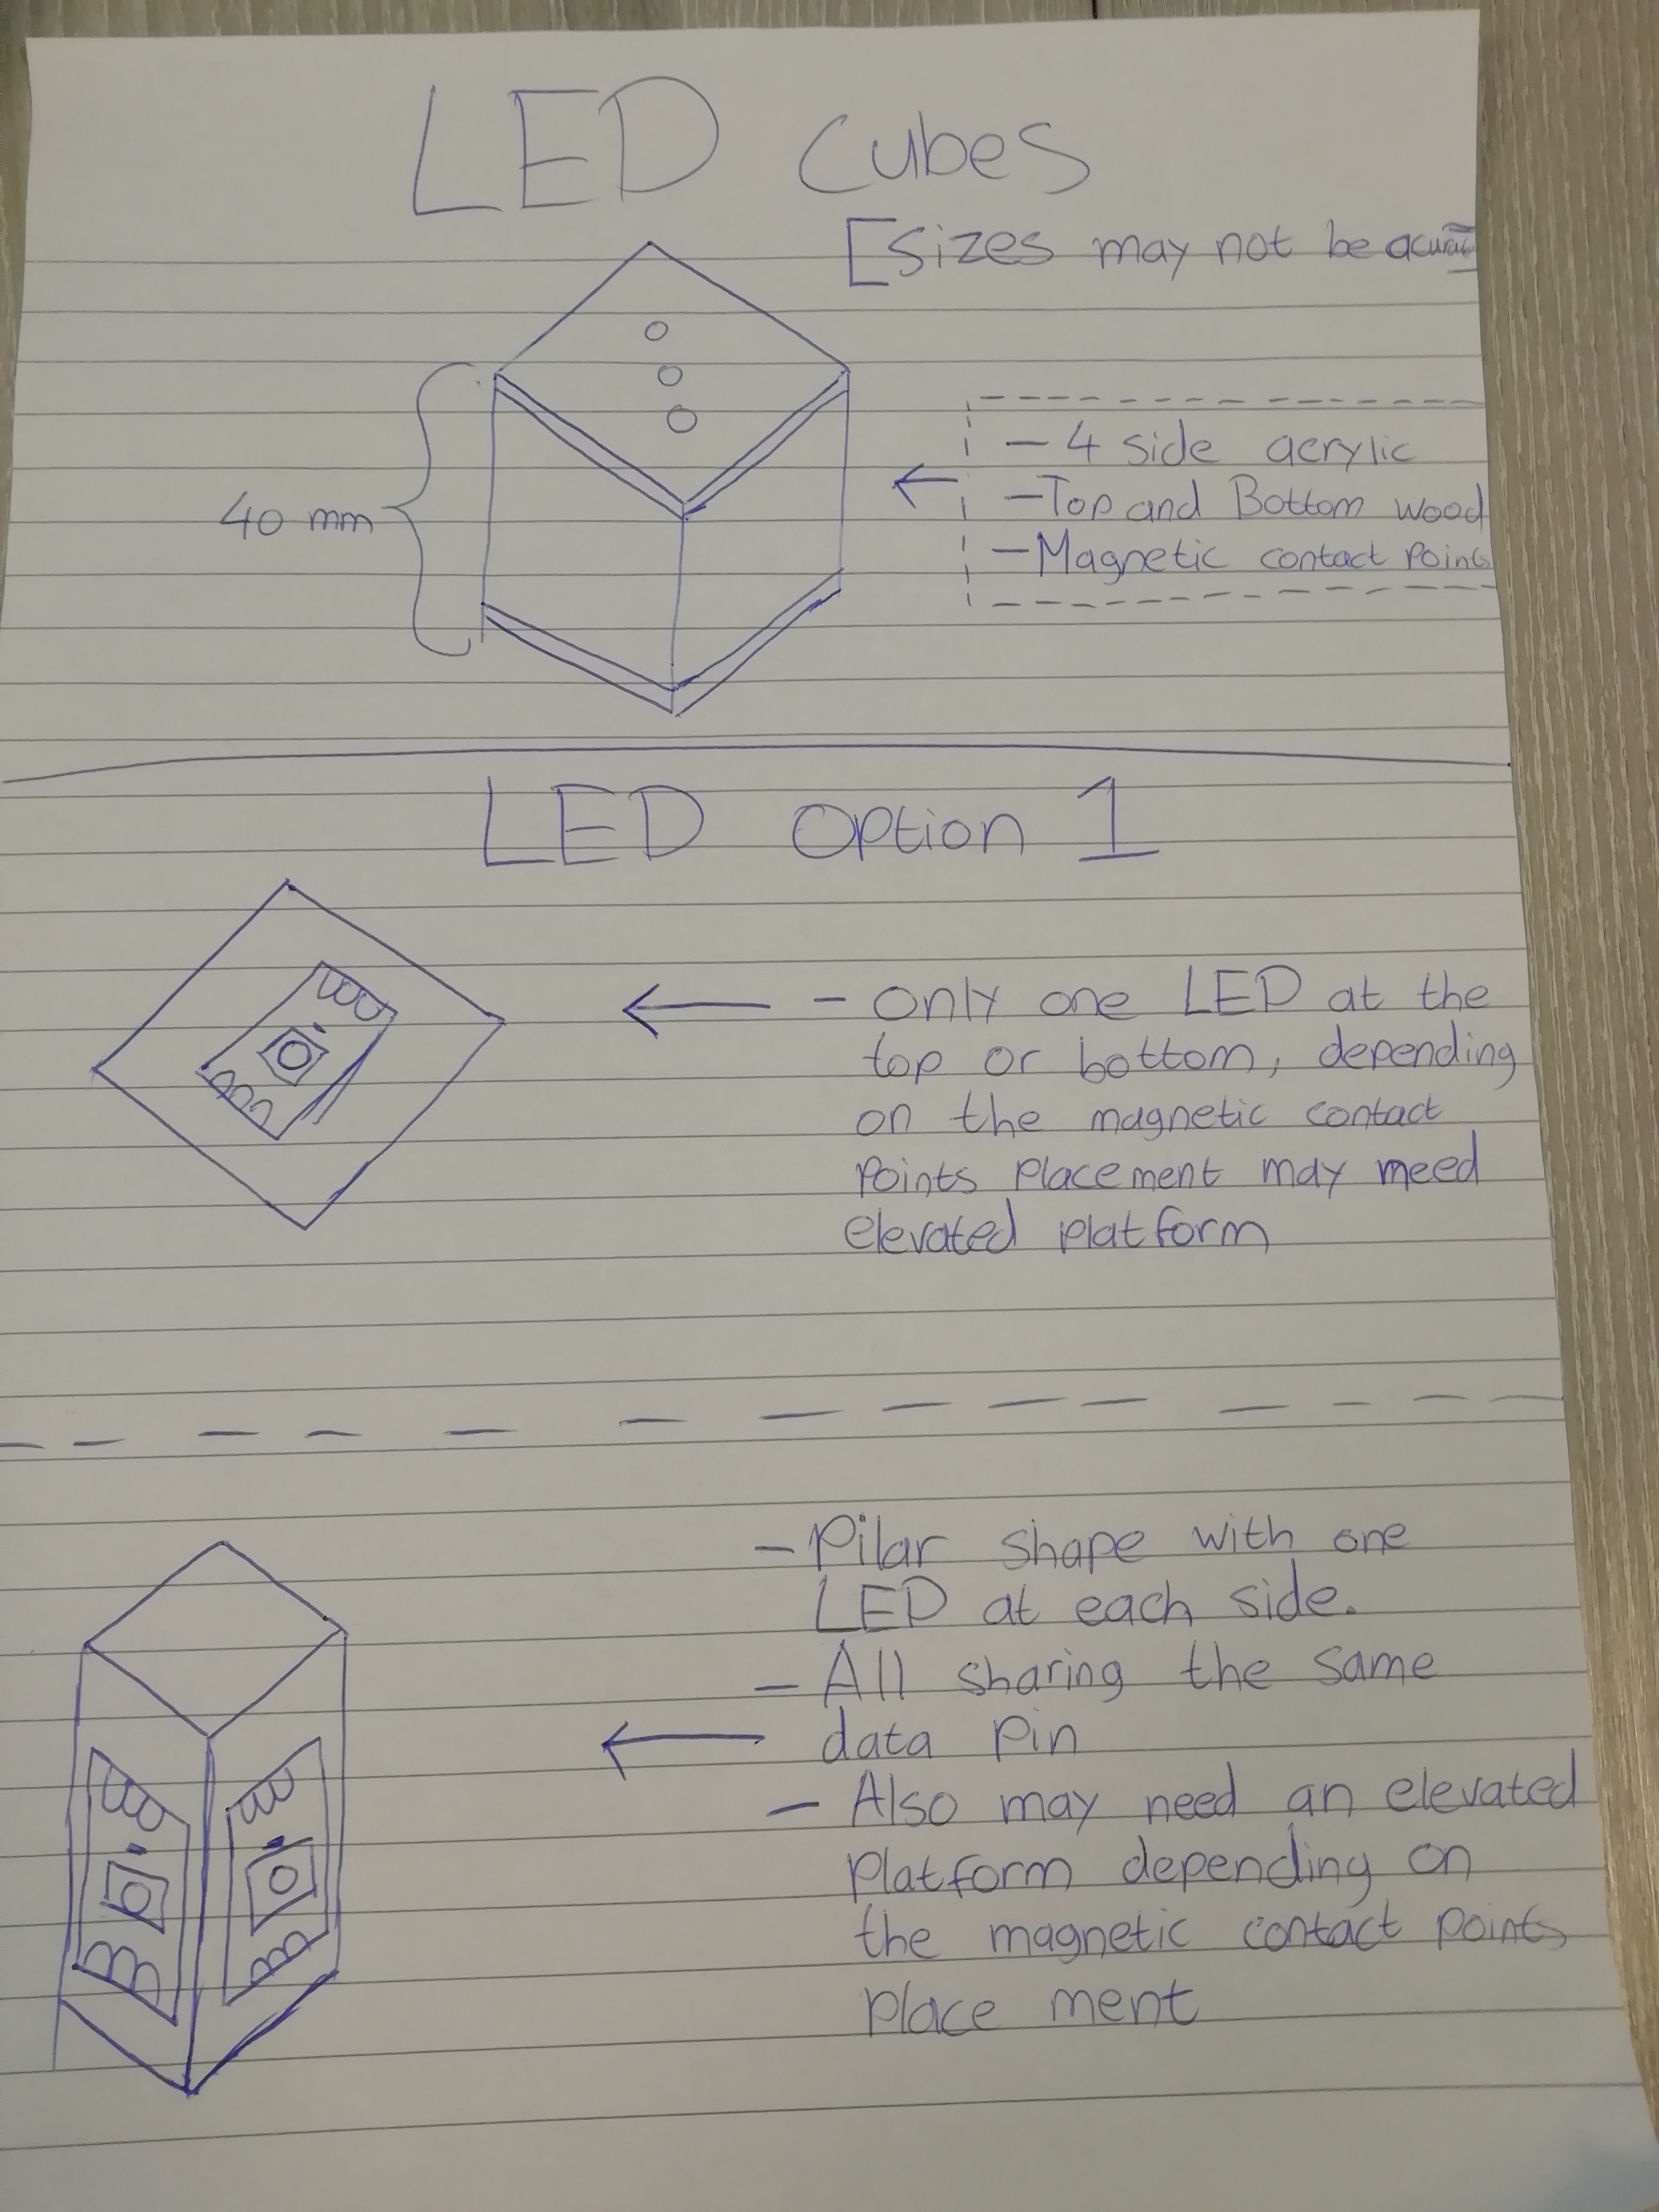 LED Cubes
[Sizes may not be
40 mm
- 4 side acrylic
- Top and Bottom wood
- Magnetic contact points
LED Option 1
- Only one LED at the
top or bottom, depending
on the magnetic contact
points placement may meed
elevated platform
- Pilar shape with one
LED at each side.
- All sharing the same
data pin
- Also may need an elevated
platform depending on
the magnetic contact points
place ment